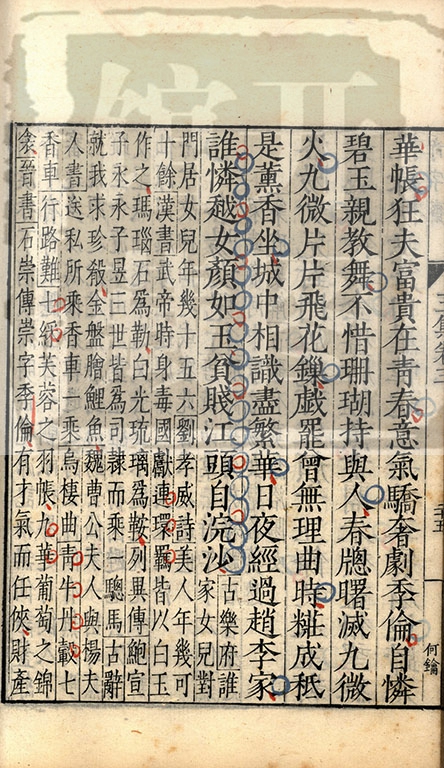 華帳狂夫富貴在青春意氣驕奢劇季倫自憐
碧玉親教舞不惜珊瑚持與人春牕曙滅九微
火九微片片飛花鏁戯罷曾無理曲時糚成秪
是薰香坐城中相識盡繁華日夜經過趙李家
誰憐越女顏如玉貧賤江頭自浣沙
古樂府誰
家女兒對
門居女兒年幾十五六劉孝威詩美人年幾可
十餘漢書武帝時身毒國獻連環羈皆以白玉
作之瑪瑙石爲勒白光琉璃爲鞍列異傳鮑宣
子永永子昱三世皆為司隸而乘一驄馬古辭
就我求珍殽金盤膾鯉魚魏曹公夫人與楊夫
人書送私所乘香車一乘烏棲曲青牛丹轂七
香車行路難七綵芙蓉之羽帳九華葡萄之錦
衾晉書石崇傳崇字季倫有才氣而任俠財產
何鑰